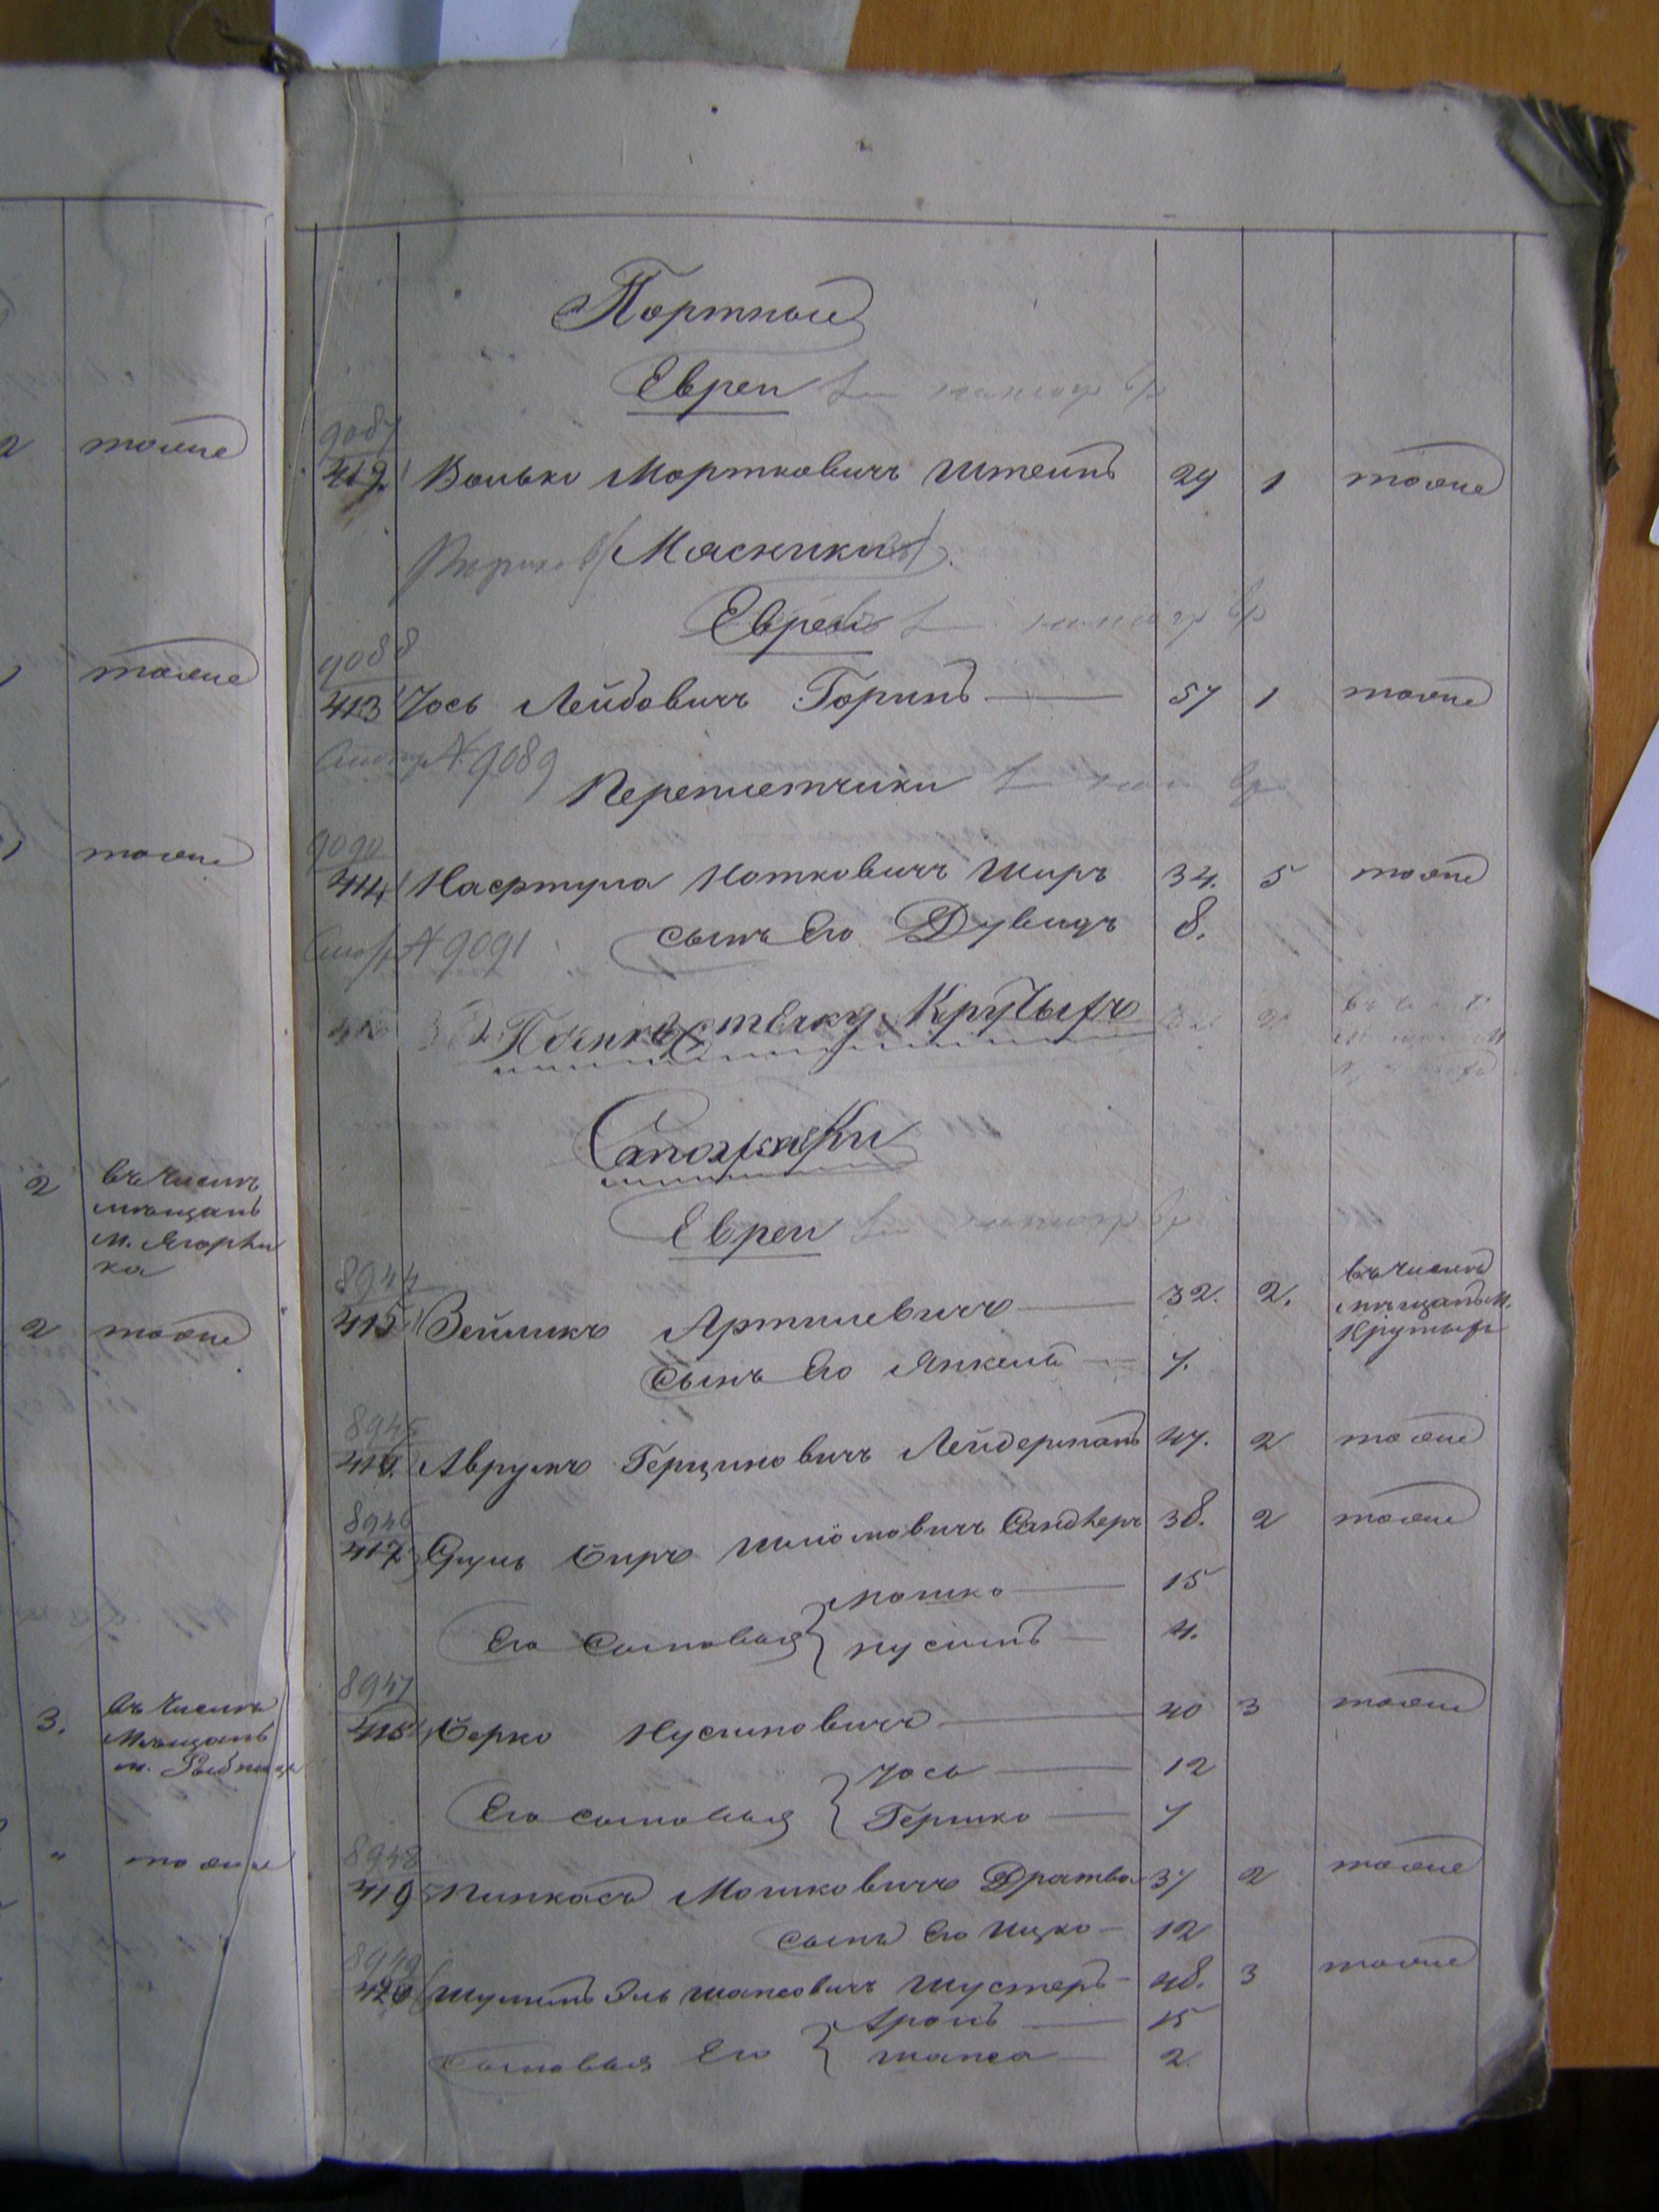 2 тоже
1 тоже
тоже
2 въ числѣ
мѣщанъ
м. Ягорлы
ка
2 тоже
3. въ числѣ
Мѣщанъ
м. Рыбница
" тоже
Портные
Евреи
9087
412. Волько Мортковичъ Штеинъ 29 1 тоже
Мясники
Евреи
9088
413 Іось Лейбовичъ Горинъ 57 1 тоже
№ 9089
Переплетчики
9090
414 Нафтула Нотковичъ Широ 34. 5 тоже
сынъ Его Дувидъ 8.
№ 9091
По мѣстечку Крутыхъ
Сапожники
Евреи
8944
415 Зейликъ Артилевичъ 32. 2. въ числѣ
мѣщанъ м.
Крутыхъ
Сынъ Его Янкель 7.
8945
416. Аврумъ Герциновичъ Лейдерманъ 47. 2 тоже
8946
417 Сруль Беръ Шлёмовичъ Сандлеръ 38. 2 тоже
Мошко 15
Его Сыновья Нусинъ 4.
8947
418 Берко Нусиновичъ 40 3 тоже
Іось 12
Его сыновья Гершко 7
8948
419 Пинкасъ Мошковичъ Дратва 37 2 тоже
сынъ Его Ицко 12
8949
420 Шулимъ Эль Шапсовичъ Шустеръ 48. 3 тоже
Аронъ 15
Сыновья Его Шапса 2